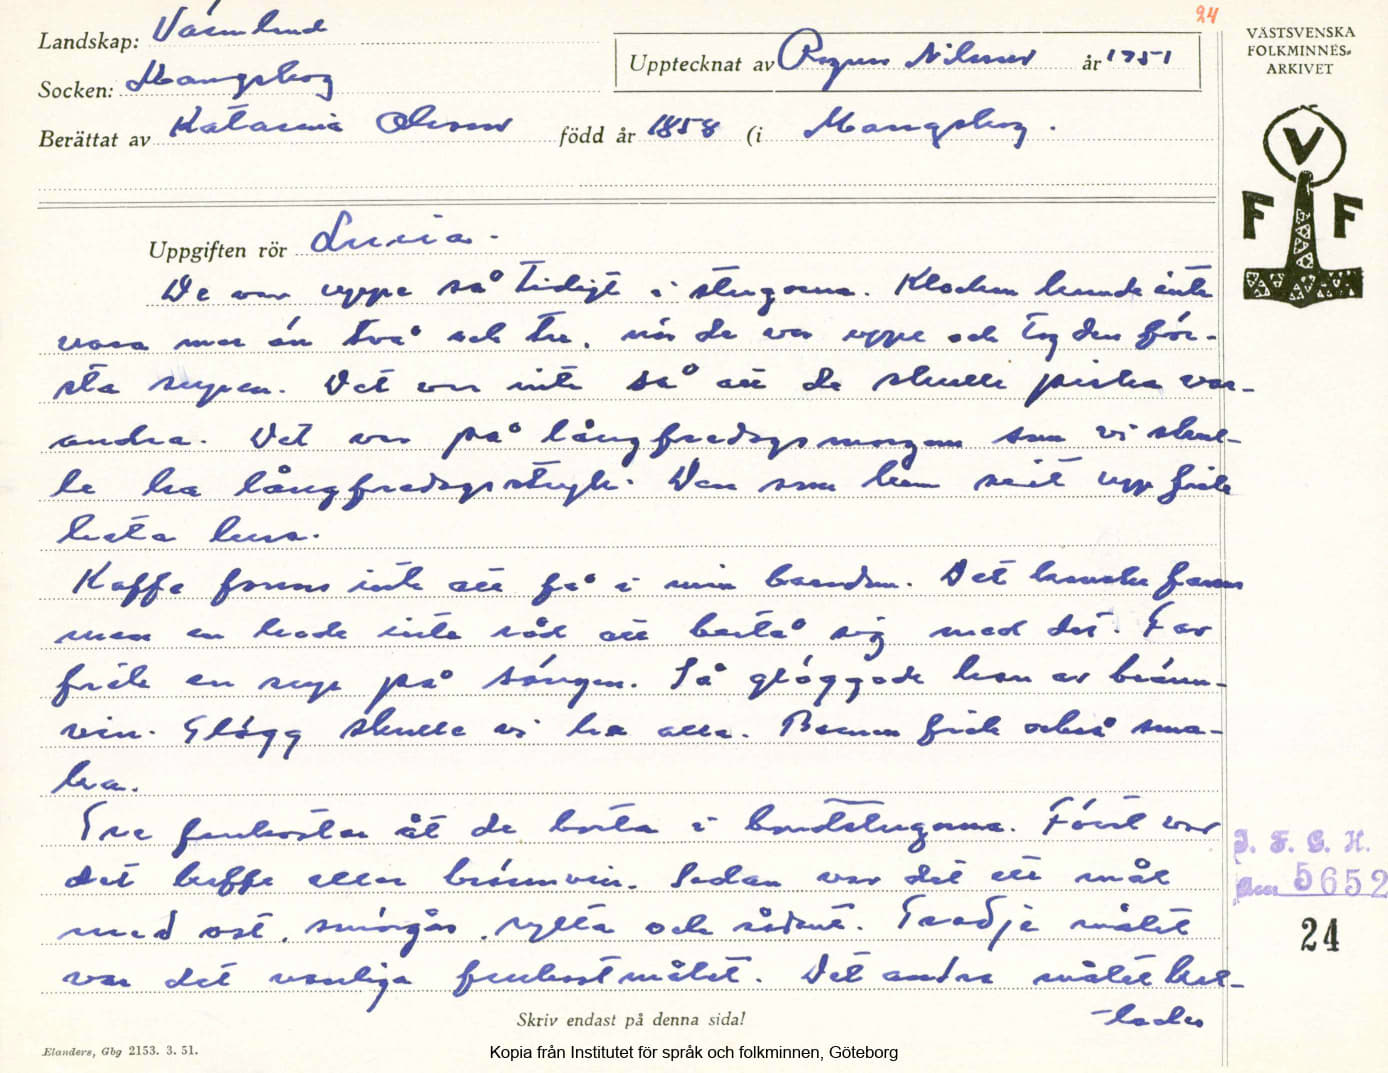 24
Landskap: Värmland
Socken: Mangskog
Upptecknat av Ragnar Nilsson år 1951
Berättat av Katarina Olsson född år 1858 (i Mangskog.
VÄSTSVENSKA
FOLKMINNES-
ARKIVET
V
F F
Uppgiften rör Lucia.
De var uppe så tidigt i stugorna. Klockan kunde inte
vara mer än två och tre, när de var uppe och tog den för-
sta supen. Det var inte så att de skulle piska var-
andra. Det var på långfredagsmorgon som vi skul-
le ha långfredagsstryk. Den som kom sent upp fick
heta
Kaffe fanns inte att få i min barndom. Det kanske fanns
men en hade inte råd att bestå sig med det. Far
fick en sup på sängen. Så glöggade han av bränn-
vin. Glögg skulle vi ha alla. Barnen fick också sma-
ka.
Tre frukostar åt de borta i bondstugorna. Först var
det kaffe eller brännvin. Sedan var det ett mål
med ost, smörgås, sylta och sådant. Tredje målet
var det vanliga frukostmålet. Det andra målet kal-
-lades
Skriv endast på denna sida!
I. F. G. H.
5652
24
Elanders, Gbg 2153. 3. 51.
Kopia från Institutet för språk och folkminnen, Göteborg